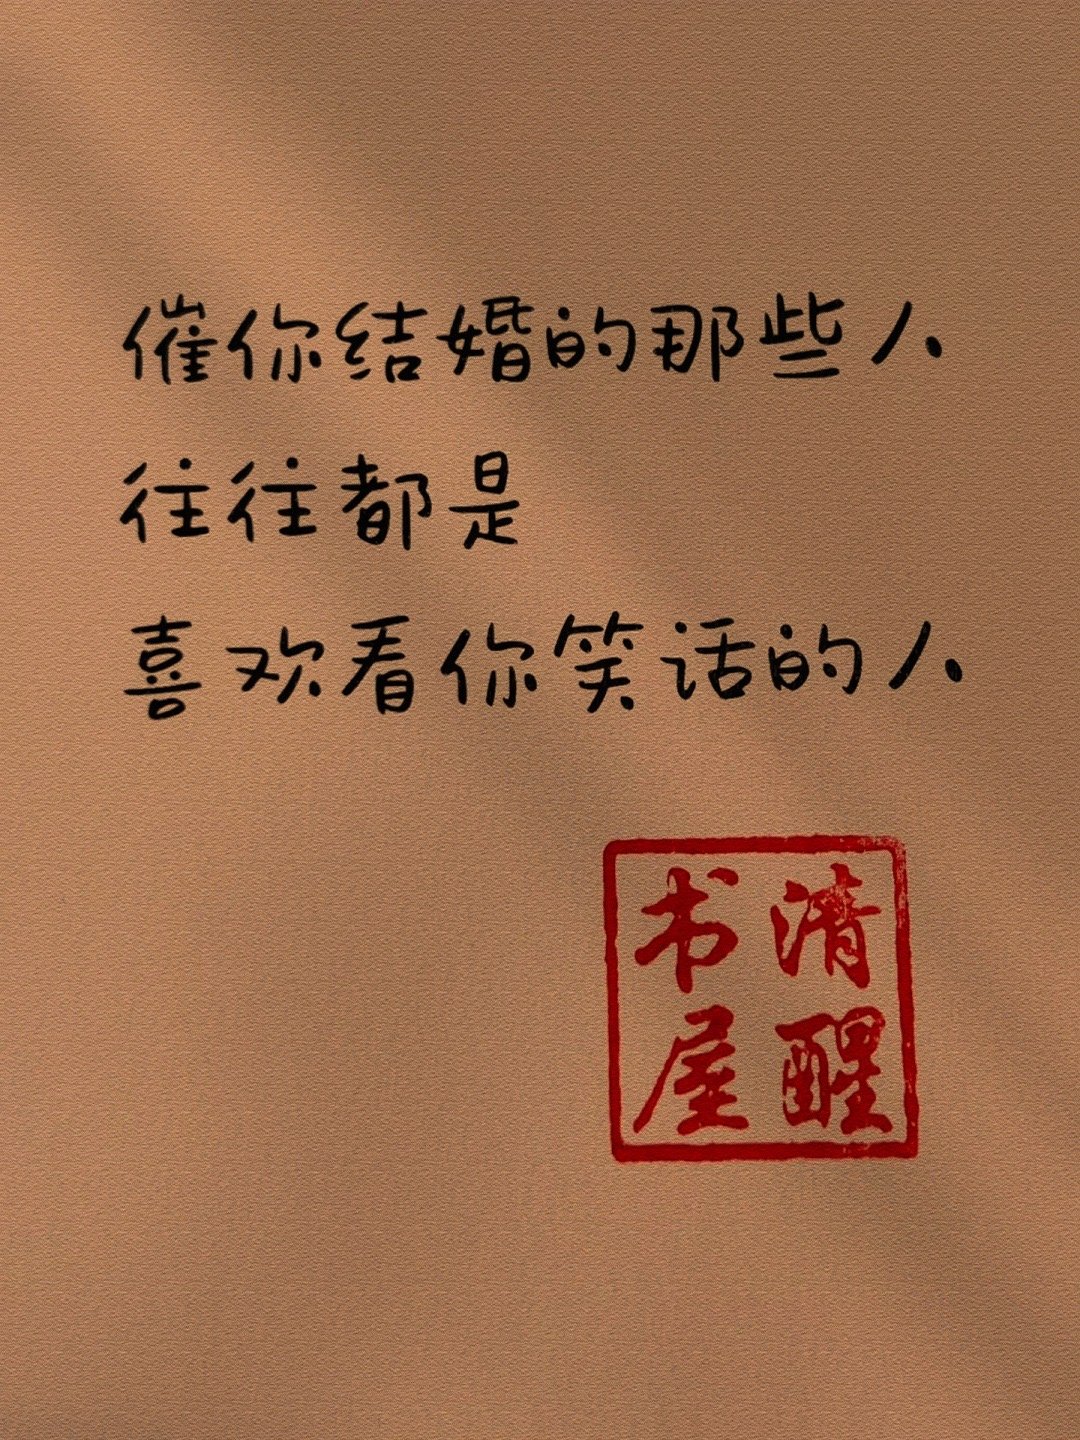 催你结婚的那些人
往往都是
喜欢看你笑话的人
清醒
书屋